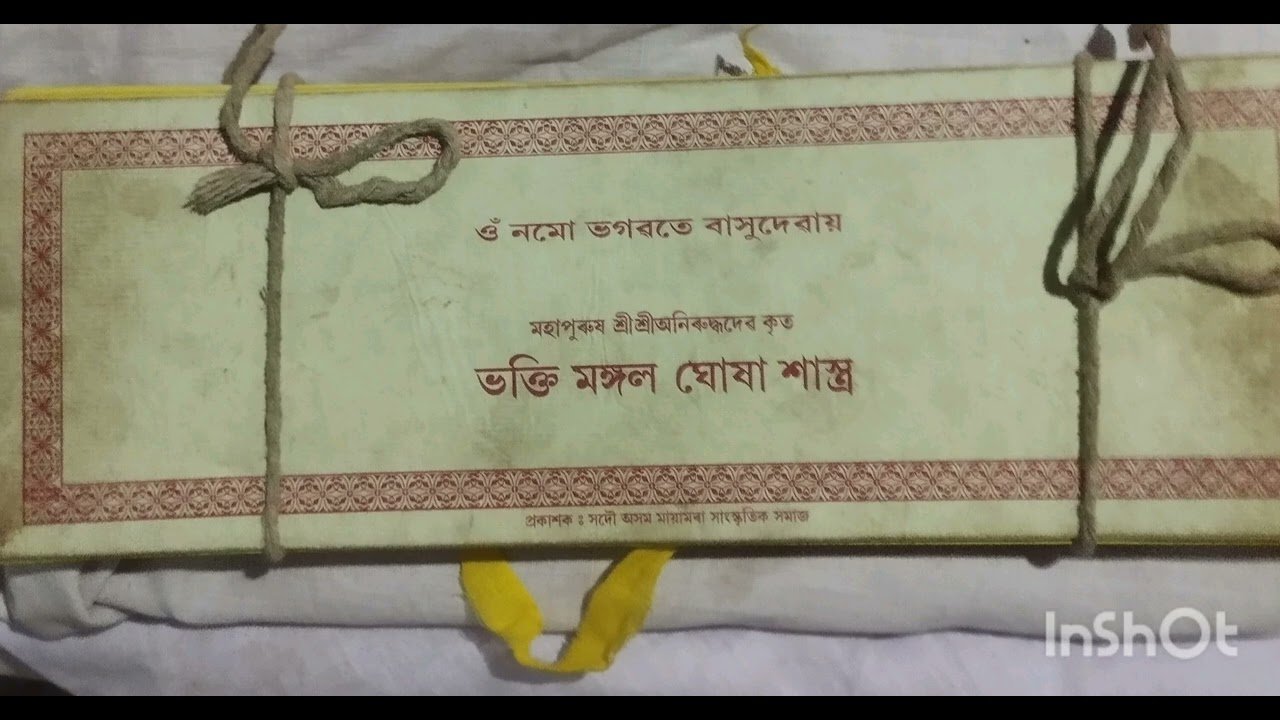 ওঁ নমো ভগৱতে বাসুদেৱায়
মহাপুৰুষ শ্ৰীশ্ৰীঅনিৰুদ্ধদেৱ কৃত
ভক্তি মঙ্গল ঘোষা শাস্ত্ৰ
প্ৰকাশক : সদৌ অসম মায়ামৰা সাংস্কৃতিক সমাজ
InShOt